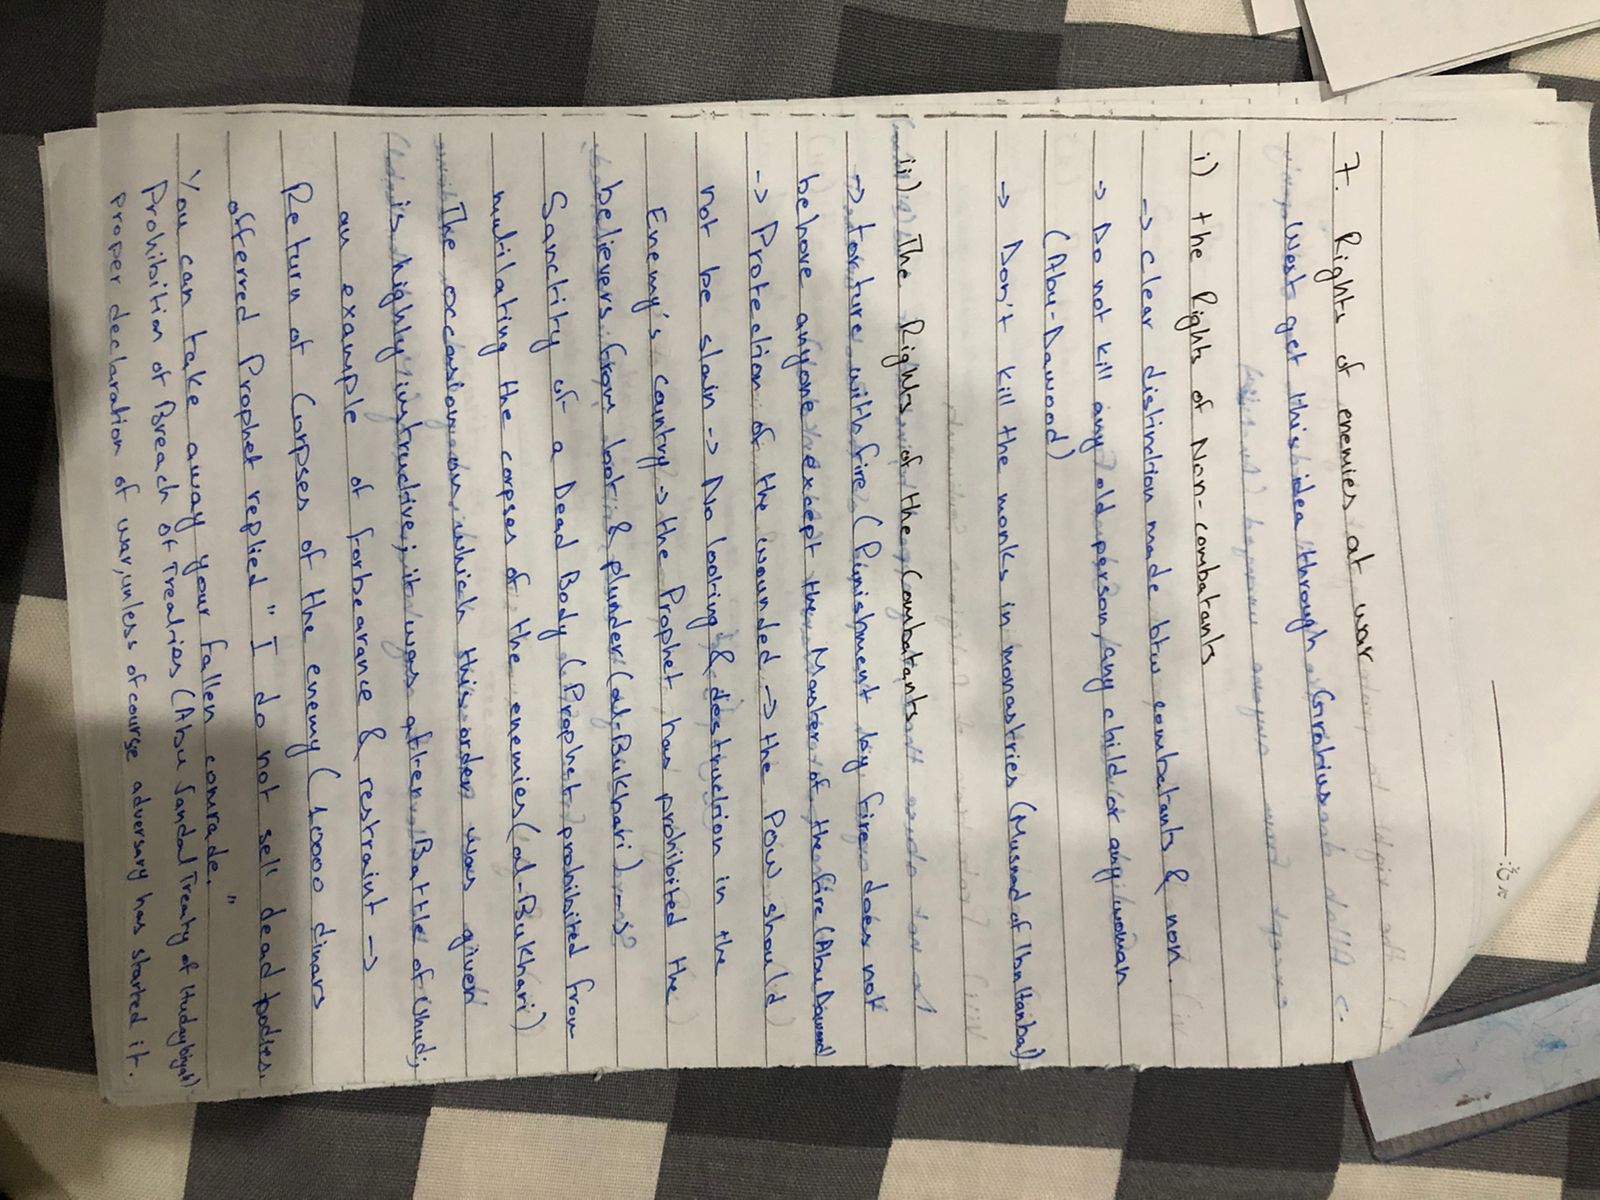 7. Rights of enemies at war
West get this idea through Grotius
i) the Rights of Non-combatants
→ clear distinction made btw combatants & non.
→ Do not kill any old person, any child or any woman
(Abu-Dawood)
→ Don't kill the monks in monastries (Musnad of Ibn Hanbal)
ii) The Rights of the Combatants
→ torture with fire (Punishment by fire does not
behove anyone except the Master of the fire (Abu Dawood)
→ Protection of the wounded → the POW should
not be slain → No looting & destruction in the
Enemy's country → the Prophet has prohibited the
believers from loot & plunder (al-Bukhari)
Sanctity of a Dead Body (Prophet prohibited from
mutilating the corpses of the enemies (al-Bukhari)
The occasion on which this order was given
is highly instructive; it was after Battle of Uhud;
an example of forbearance & restraint →
Return of Corpses of the enemy (10000 dinars
offerred Prophet replied " I do not sell dead bodies.
You can take away your fallen comrade. "
Prohibition of Breach of Treaties (Abu Jandal Treaty of Hudaybiyah)
proper declaration of war, unless of course adversary has started it.